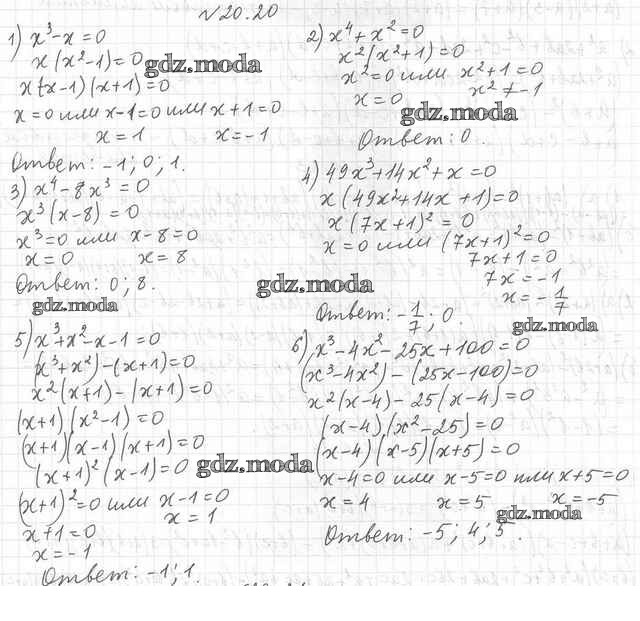 №20.20
1) x³-x=0
x(x²-1)=0
x(x-1)(x+1)=0
x=0 или x-1=0 или x+1=0
x=1 x=-1
Ответ: -1; 0; 1.
2) x⁴+x²=0
x²(x²+1)=0
x²=0 или x²+1=0
x=0 x²≠-1
Ответ: 0.
3) x⁴-8x³=0
x³(x-8)=0
x³=0 или x-8=0
x=0 x=8
Ответ: 0; 8.
4) 49x³+14x²+x=0
x(49x²+14x+1)=0
x(7x+1)²=0
x=0 или (7x+1)²=0
7x+1=0
7x=-1
x=-1/7
Ответ: -1/7; 0.
5) x³+x²-x-1=0
(x³+x²)-(x+1)=0
x²(x+1)-(x+1)=0
(x+1)(x²-1)=0
(x+1)(x-1)(x+1)=0
(x+1)²(x-1)=0
(x+1)²=0 или x-1=0
x+1=0 x=1
x=-1
Ответ: -1; 1.
6) x³-4x²-25x+100=0
(x³-4x²)-(25x-100)=0
x²(x-4)-25(x-4)=0
(x-4)(x²-25)=0
(x-4)(x-5)(x+5)=0
x-4=0 или x-5=0 или x+5=0
x=4 x=5 x=-5
Ответ: -5; 4; 5.
gdz.moda
gdz.moda
gdz.moda
gdz.moda
gdz.moda
gdz.moda
gdz.moda